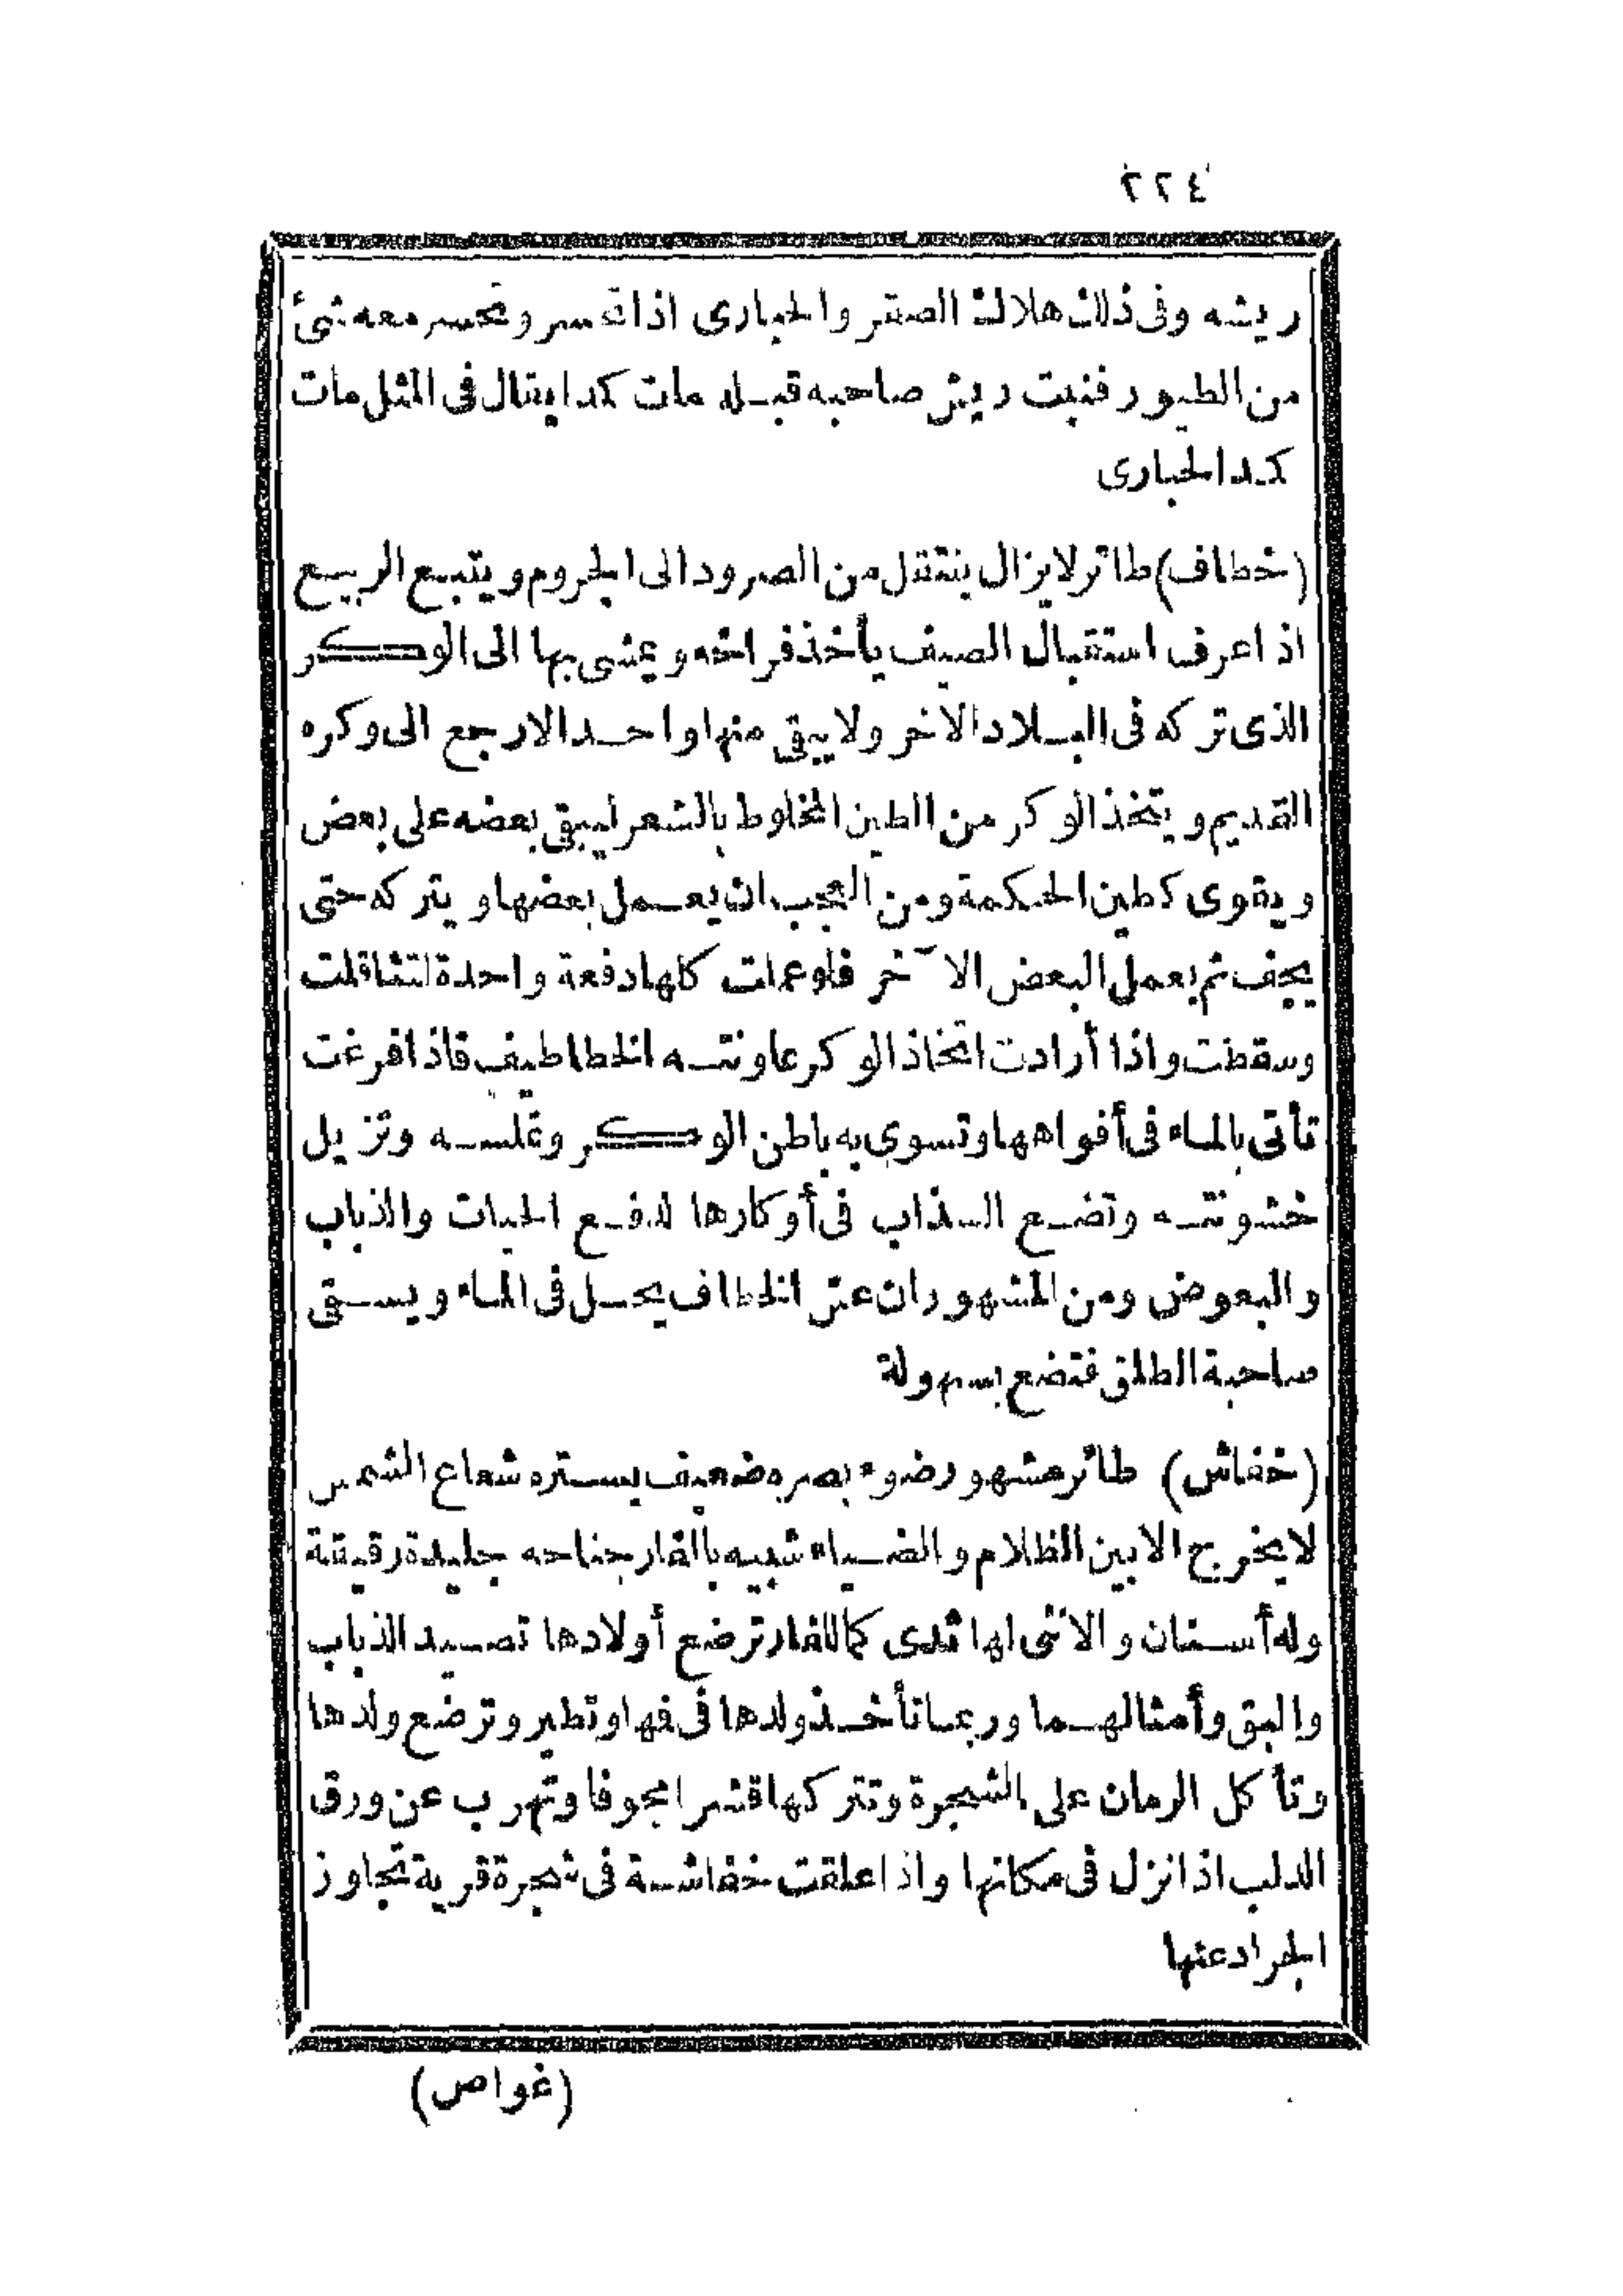 ٢٢٤
ريشه وفى ذلك هلاك الصقر والحبارى اذا تحسر وتحسر معه شئ
من الطيور فنبت ريش صاحبه قبله مات كدا يقال فى المثل مات
كدا الحبارى
(خطاف) طائر لايزال ينتقل من الصرود الى الجروم ويتبع الربيع
اذا عرف استقبال الصيف يأخذ فراخه ويمشى بها الى الوكر
الذى تركه فى البلاد الاخر ولا يبقى منها واحد الا رجع الى وكره
القديم ويتخذ الوكر من الطين المخلوط بالشعر ليبقى بعضه على بعض
ويقوى كطين الحكمة ومن العجب ان يعمل بعضها ويتركه حتى
يجف ثم يعمل البعض الآخر فلو عملت كلها دفعة واحدة لتثاقلت
وسقطت واذا أرادت اتخاذ الوكر عاونته الخطاطيف فاذا فرغت
تأتى بالماء فى أفواهها وتسوى به باطن الوكر وتملسه وتزيل
خشونته وتضع السذاب فى أوكارها لدفع الحيات والذباب
والبعوض ومن المشهور ان عش الخطاف يحل فى الماء ويسقى
صاحبة الطلق فتضع بسهولة
(خفاش) طائر مشهور ضوء بصره ضعيف يستره شعاع الشمس
لا يخرج الا بين الظلام والضياء شبيه بالفار جناحه جليدة رقيقة
وله أسنان والانثى لها ثدى كما للفار ترضع أولادها تصيد الذباب
والبق وأمثالهما وربما تأخذ ولدها فى فها وتطير وترضع ولدها
وتأكل الرمان على الشجرة وتتركها قشرا مجوفا وتهرب عن ورق
الدلب اذا نزل فى مكانها واذا علقت خفاشة فى شجرة قرية تجاوز
الجراد عنها
(غواص)